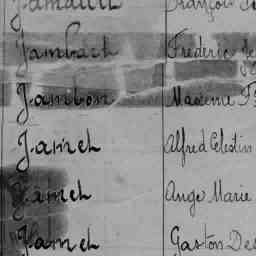 Jambart Frédéric
Jambon Maxime
Jamet Alfred Célestin
Jamet Ange Marie
Jamet Gaston Des